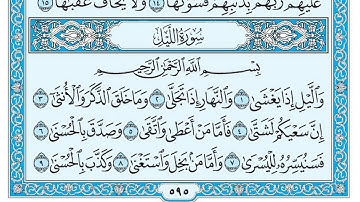 عَلَيْهِمْ رَبُّهُم بِذَنۢبِهِمْ فَسَوَّىٰهَا ١٤ وَلَا يَخَافُ عُقْبَٰهَا ١٥
سُورَةُ اللَّيْلِ
بِسْمِ اللَّهِ الرَّحْمَٰنِ الرَّحِيمِ
وَالَّيْلِ إِذَا يَغْشَىٰ ١ وَالنَّهَارِ إِذَا تَجَلَّىٰ ٢ وَمَا خَلَقَ الذَّكَرَ وَالْأُنثَىٰ ٣
إِنَّ سَعْيَكُمْ لَشَتَّىٰ ٤ فَأَمَّا مَنْ أَعْطَىٰ وَاتَّقَىٰ ٥ وَصَدَّقَ بِالْحُسْنَىٰ ٦
فَسَنُيَسِّرُهُۥ لِلْيُسْرَىٰ ٧ وَأَمَّا مَنۢ بَخِلَ وَاسْتَغْنَىٰ ٨ وَكَذَّبَ بِالْحُسْنَىٰ ٩
٥٩٥